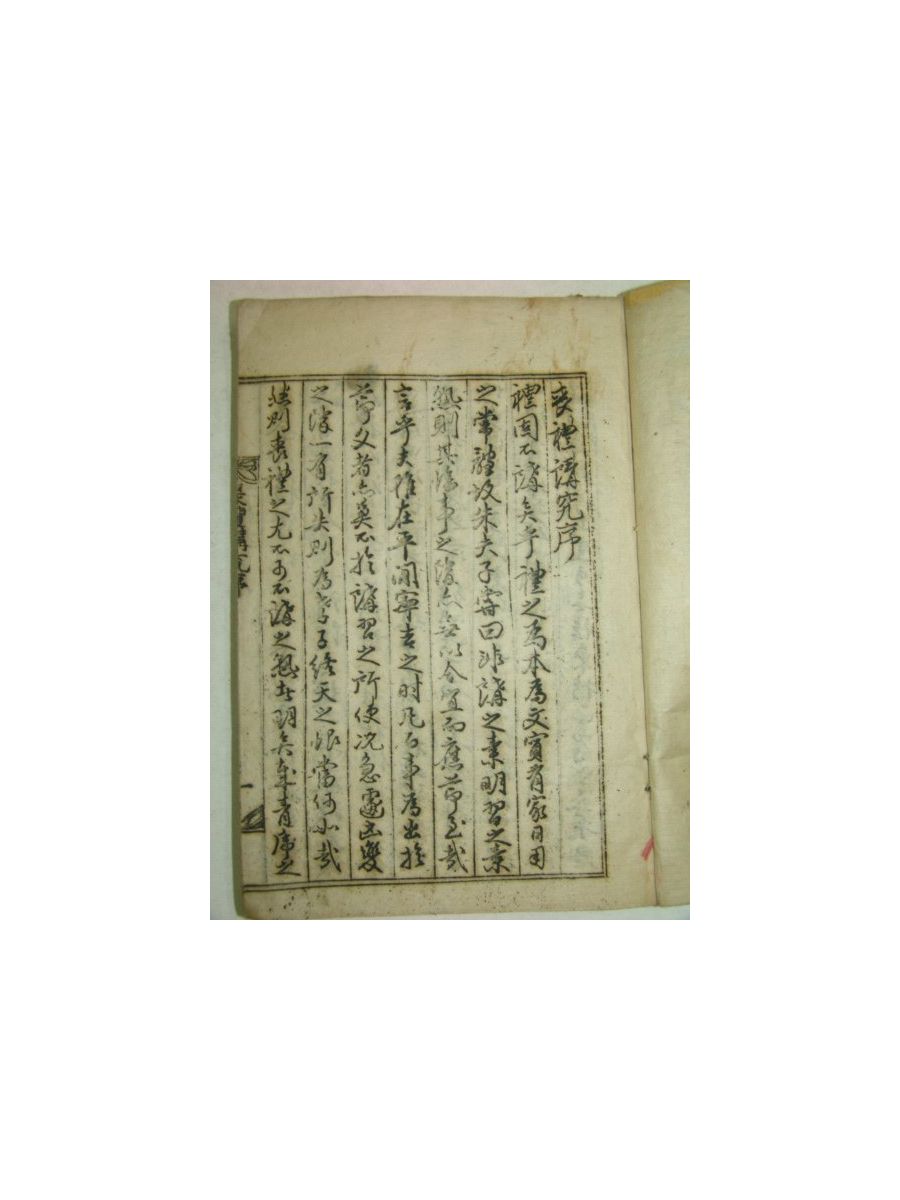 喪禮講究序
禮固不講矣乎禮之爲本爲文實有家日用
之常體故朱夫子嘗曰非講之素明習之素
熟則其臨事之際亦無以合宜而應節至哉
言乎夫雖在平間寧吉之时凡百事爲出於
節文者亦莫不於講習之所使况急遽凶變
之際一有所失則爲孝子終天之恨當何如哉
然則喪禮之尤不可不講之熟也明矣青席之
喪禮講究序
一